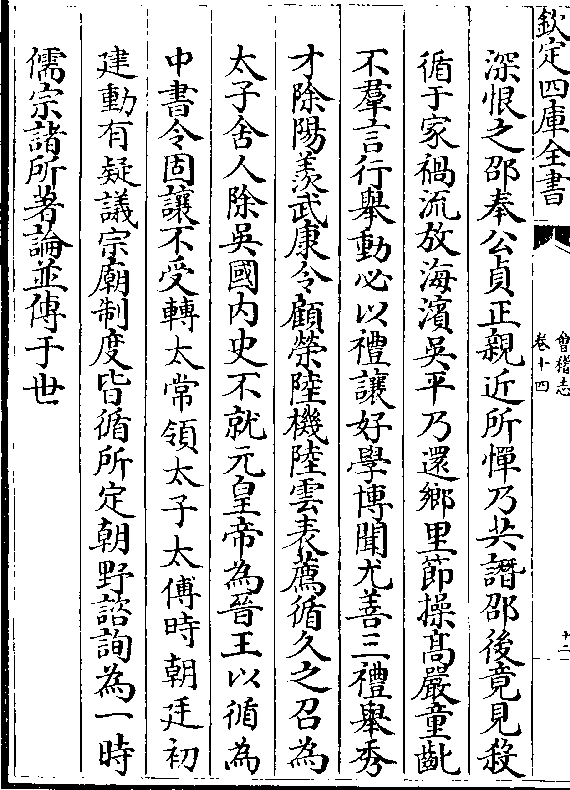 欽定四庫全書
會稽志
卷十四
十二
深恨之邵奉公貞正親近所憚乃共譖邵後竟見殺
循于家禍流放海濱吳平乃還鄉里節操高嚴童齔
不羣言行舉動必以禮讓好學博聞尤善三禮舉秀
才除陽羨武康令顧榮陸機陸雲表薦循久之召為
太子舍人除吳國内史不就元皇帝為晉王以循為
中書令固讓不受轉太常領太子太傅時朝廷初
建動有疑議宗廟制度皆循所定朝野諮詢為一時
儒宗諸所著論並傳于世